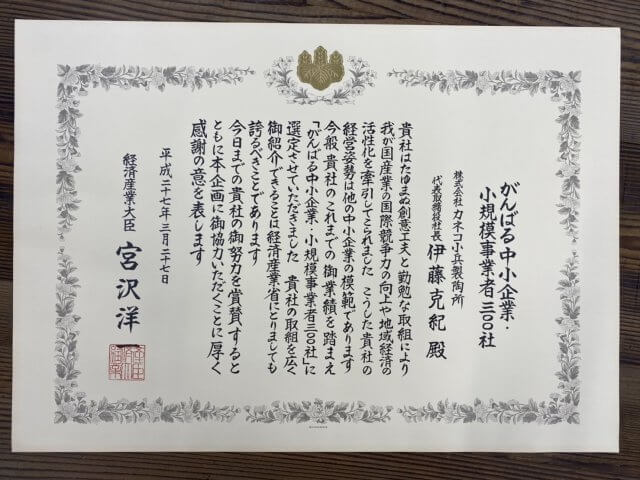 がんばる中小企業・
小規模事業者三〇〇社
株式会社カネコ小兵製陶所
代表取締役社長 伊藤克紀 殿
貴社はたゆまぬ創意工夫と勤勉な取組により
我が国産業の国際競争力の向上や地域経済の
活性化を牽引してこられました こうした貴社の
経営姿勢は他の中小企業の模範であります
今般 貴社のこれまでの御業績を踏まえ
「がんばる中小企業・小規模事業者三〇〇社」に
選定させていただきました 貴社の取組を広く
御紹介できることは経済産業省にとりましても
誇るべきことであります
今日までの貴社の御努力を賞賛すると
ともに本企画に御協力いただくことに厚く
感謝の意を表します
平成二十七年三月二十七日
経済産業大臣 宮沢洋一